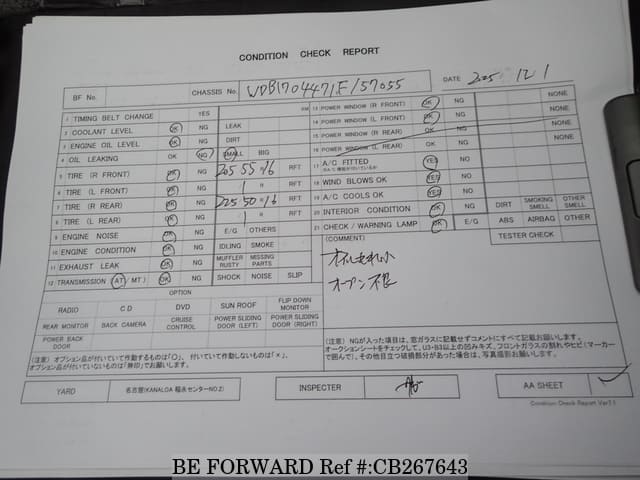 CONDITION CHECK REPORT
BF No. CHASSIS No. WDB1704471F/57055 DATE 2005 12 1
1 TIMING BELT CHANGE YES KM
2 COOLANT LEVEL OK NG LEAK
3 ENGINE OIL LEVEL OK NG DIRT
4 OIL LEAKING OK NG SMALL BIG
5 TIRE (R FRONT) OK NG 205 55 16 RFT
6 TIRE (L FRONT) OK NG RFT
7 TIRE (R REAR) OK NG 225 50 16 RFT
8 TIRE (L REAR) OK NG RFT
9 ENGINE NOISE OK NG E/G OTHERS
10 ENGINE CONDITION OK NG IDLING SMOKE
11 EXHAUST LEAK OK NG MUFFLER RUSTY MISSING PARTS
12 TRANSMISSION (AT/ MT) OK NG SHOCK NOISE SLIP
13 POWER WINDOW (R FRONT) OK NG NONE
14 POWER WINDOW (L FRONT) OK NG NONE
15 POWER WINDOW (R REAR) OK NG NONE
16 POWER WINDOW (L REAR) OK NG NONE
17 A/C FITTED YES NO
18 WIND BLOWS OK YES NO
19 A/C COOLS OK YES NO
20 INTERIOR CONDITION OK NG DIRT SMOKING SMELL OTHER SMELL
21 CHECK / WARNING LAMP OK E/G ABS AIRBAG OTHER
(COMMENT) TESTER CHECK
オイルもれ小
オープン不良
OPTION
RADIO C D DVD SUN ROOF FLIP DOWN MONITOR
REAR MONITOR BACK CAMERA CRUISE CONTROL POWER SLIDING DOOR (LEFT) POWER SLIDING DOOR (RIGHT)
POWER BACK DOOR
(注意) オプション品が付いていて作動するものは「○」、付いていて作動しないものは「×」、
オプション品が付いていないものは「無印」でお願いします。
(注意) NGが入った項目は、窓ガラスに記載せずコメントにすべて記載お願いします。
オークションシートをチェックして、U3・B3以上の凹みキズ、フロントガラスの割れやヒビ(マーカー
で囲んで)、その他目立つ破損部分があった場合は、写真撮影お願いします。
YARD 名古屋(KANALOA 稲永センターNO2) INSPECTER AA SHEET
Condition Check Report Ver7.1
BE FORWARD Ref #:CB267643